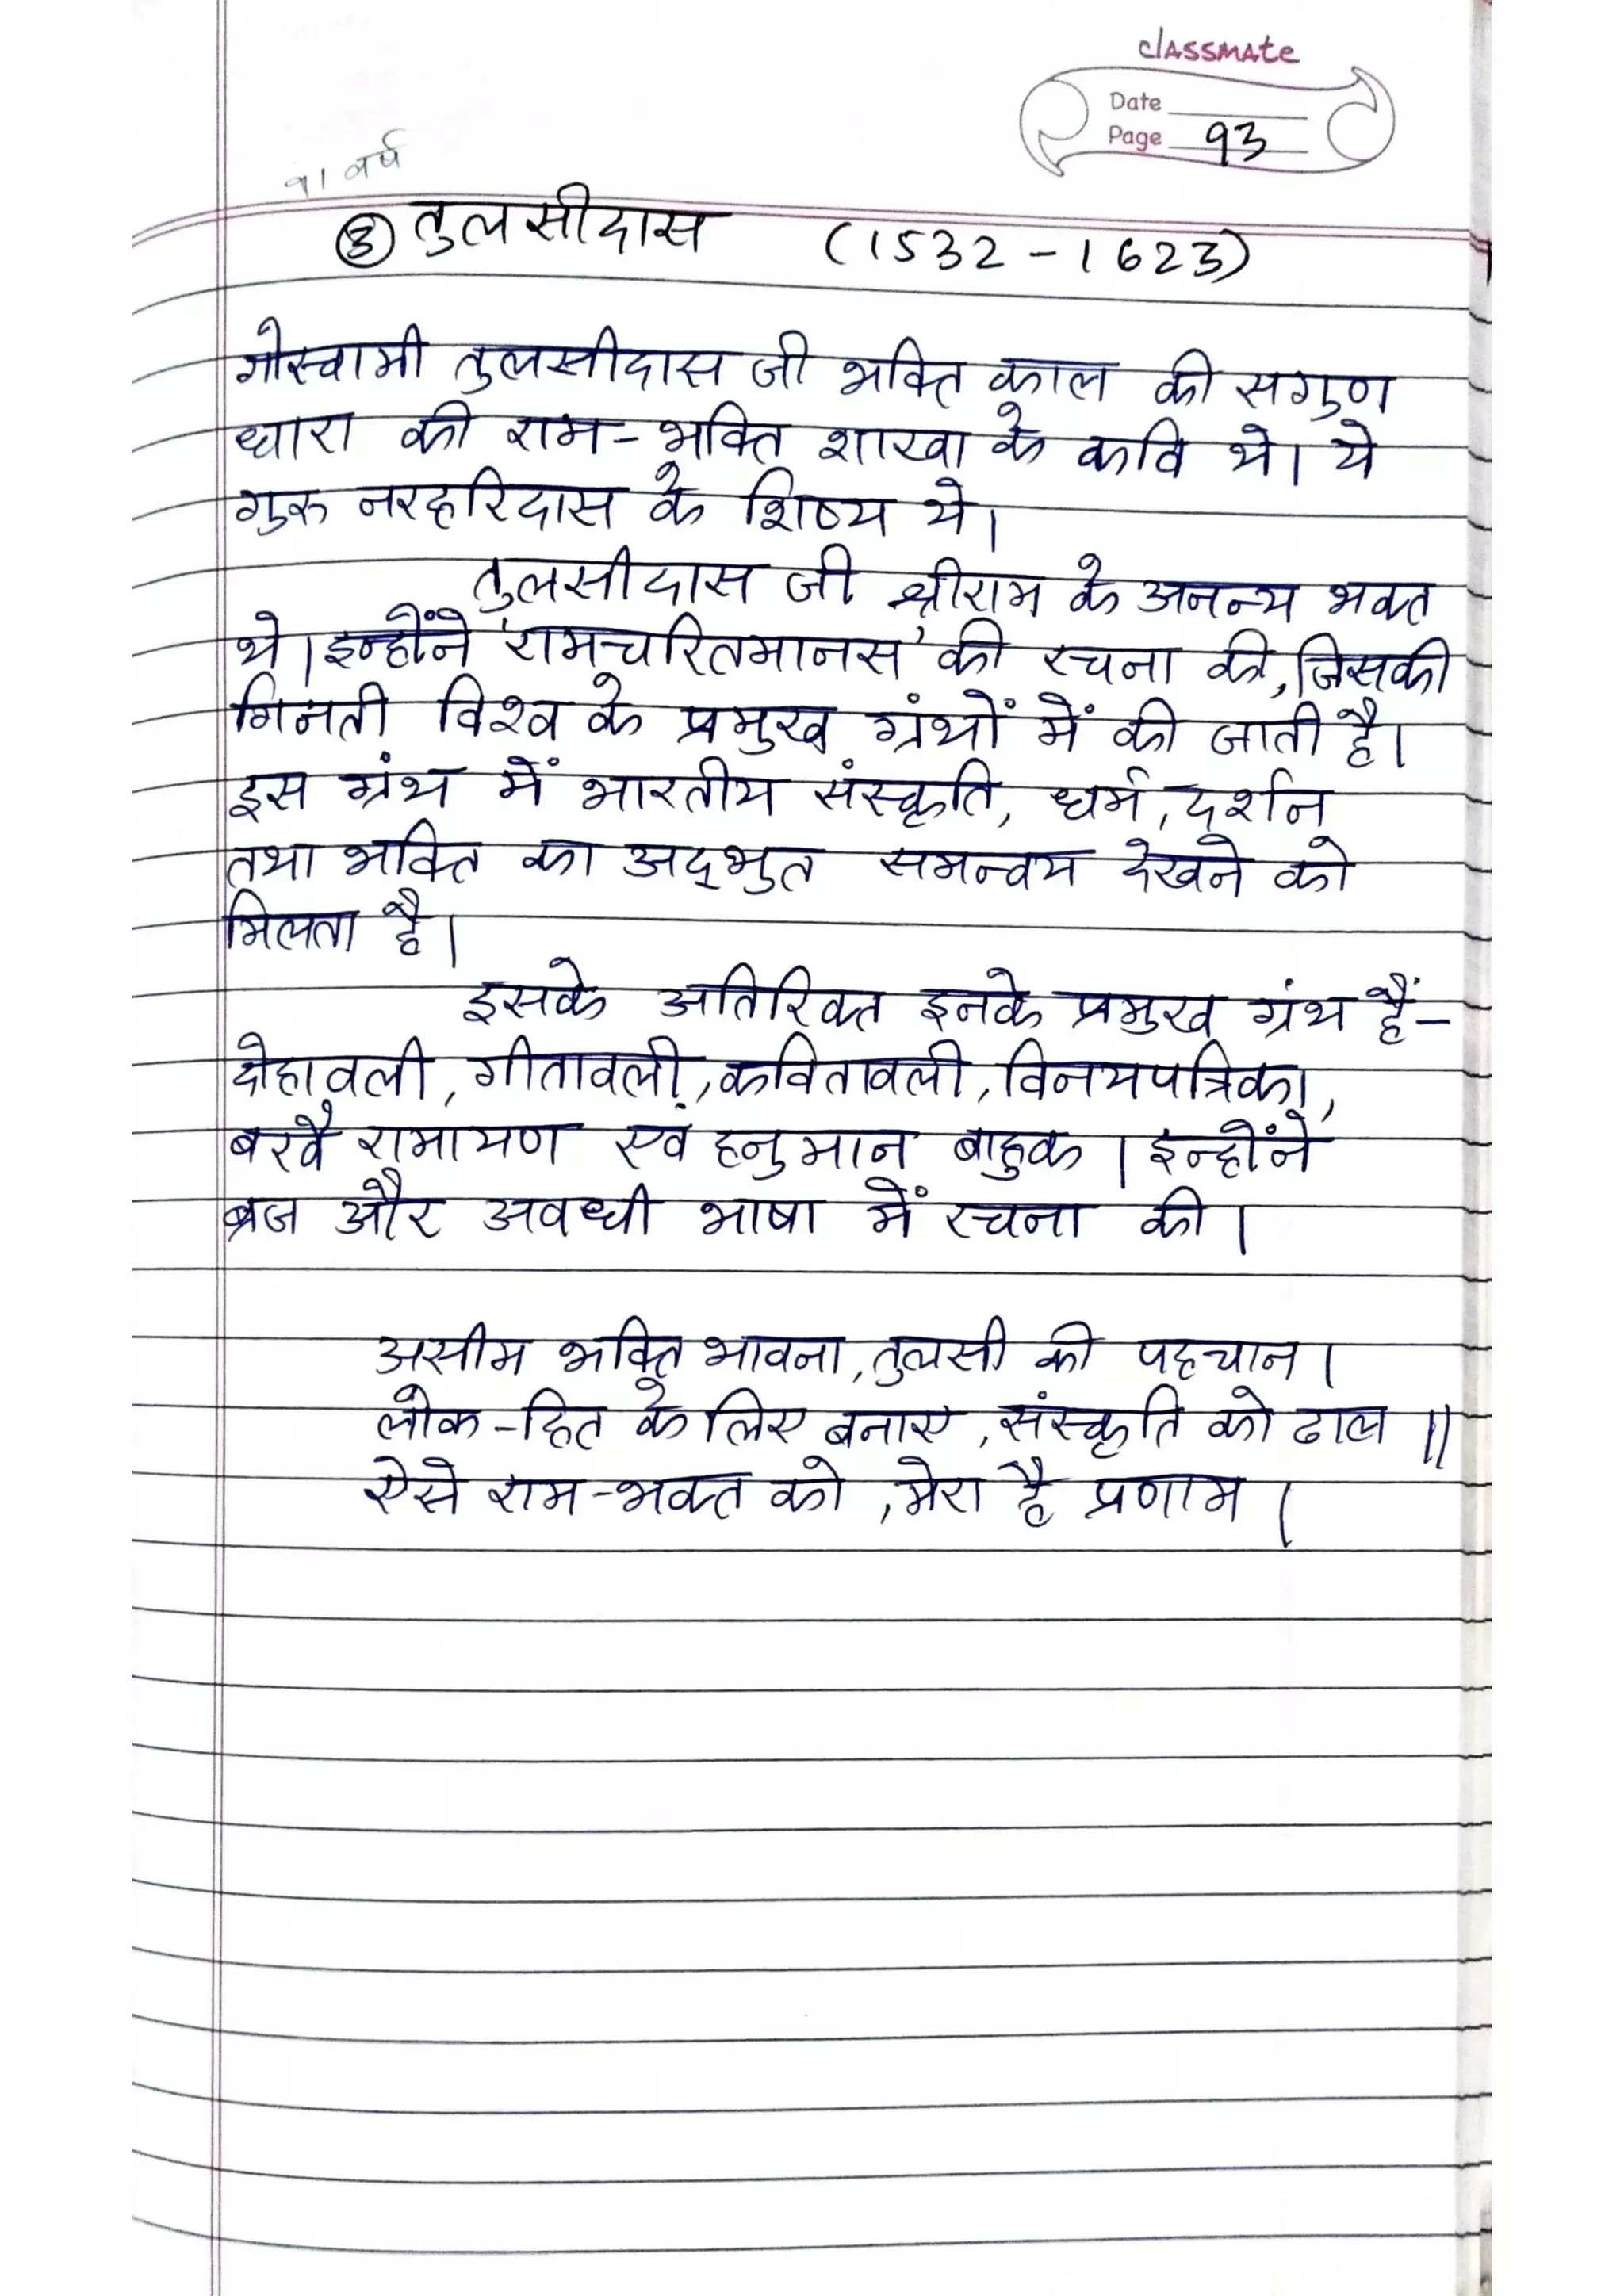 classmate
Date
Page 93
91 वर्ष
③ तुलसीदास (1532-1623)
गोस्वामी तुलसीदास जी भक्ति काल की सगुण
धारा की राम-भक्ति शाखा के कवि थे। ये
गुरु नरहरिदास के शिष्य थे।
तुलसीदास जी श्रीराम के अनन्य भक्त
थे। इन्होंने 'रामचरितमानस' की रचना की, जिसकी
गिनती विश्व के प्रमुख ग्रंथों में की जाती है।
इस ग्रंथ में भारतीय संस्कृति, धर्म, दर्शन
तथा भक्ति का अद्‌भुत समन्वय देखने को
मिलता है।
इसके अतिरिक्त इनके प्रमुख ग्रंथ हैं-
दोहावली, गीतावली, कवितावली, विनयपत्रिका,
बरवै रामायण एवं हनुमान बाहुक। इन्होंने
ब्रज और अवधी भाषा में रचना की।
असीम भक्ति भावना, तुलसी की पहचान।
लोक-हित के लिए बनाए, संस्कृति को ढाल॥
ऐसे राम-भक्त को, मेरा है प्रणाम।